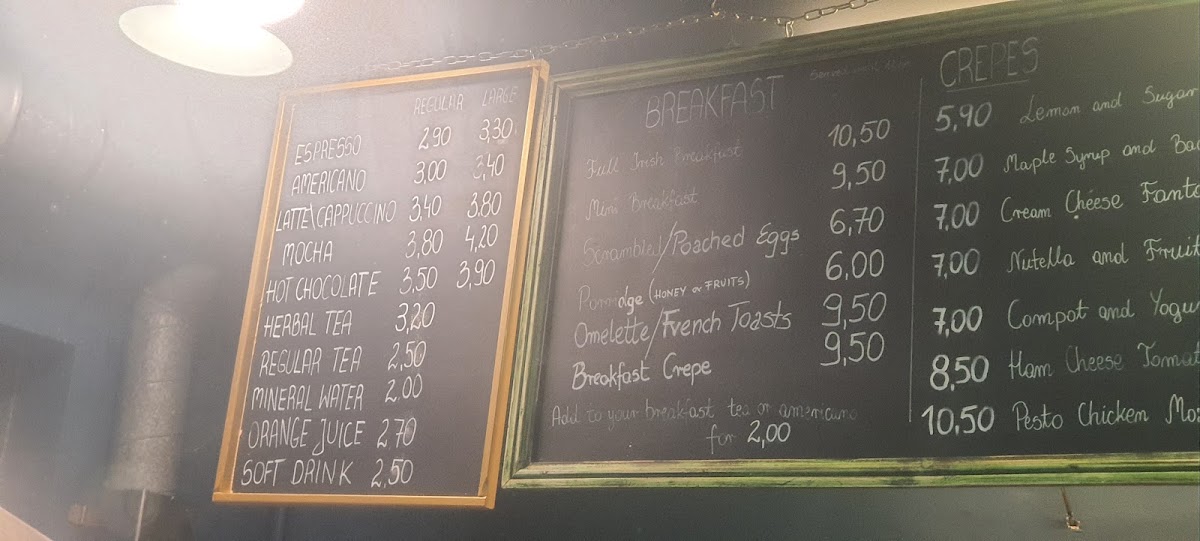 REGULAR LARGE
ESPRESSO 2,90 3,30
AMERICANO 3,00 3,40
LATTE\CAPPUCCINO 3,40 3,80
MOCHA 3,80 4,20
HOT CHOCOLATE 3,50 3,90
HERBAL TEA 3,20
REGULAR TEA 2,50
MINERAL WATER 2,00
ORANGE JUICE 2,70
SOFT DRINK 2,50
BREAKFAST
Full Irish Breakfast 10,50
Mini Breakfast 9,50
Scrambled/Poached Eggs 6,70
Porridge (HONEY or FRUITS) 6,00
Omelette/French Toasts 9,50
Breakfast Crepe 9,50
Add to your breakfast tea or americano
for 2,00
CREPES
5,90 Lemon and Sugar
7,00 Maple Syrup and
7,00 Cream Cheese
7,00 Nutella and Fruit
7,00 Compot and
8,50 Ham Cheese
10,50 Pesto Chicken